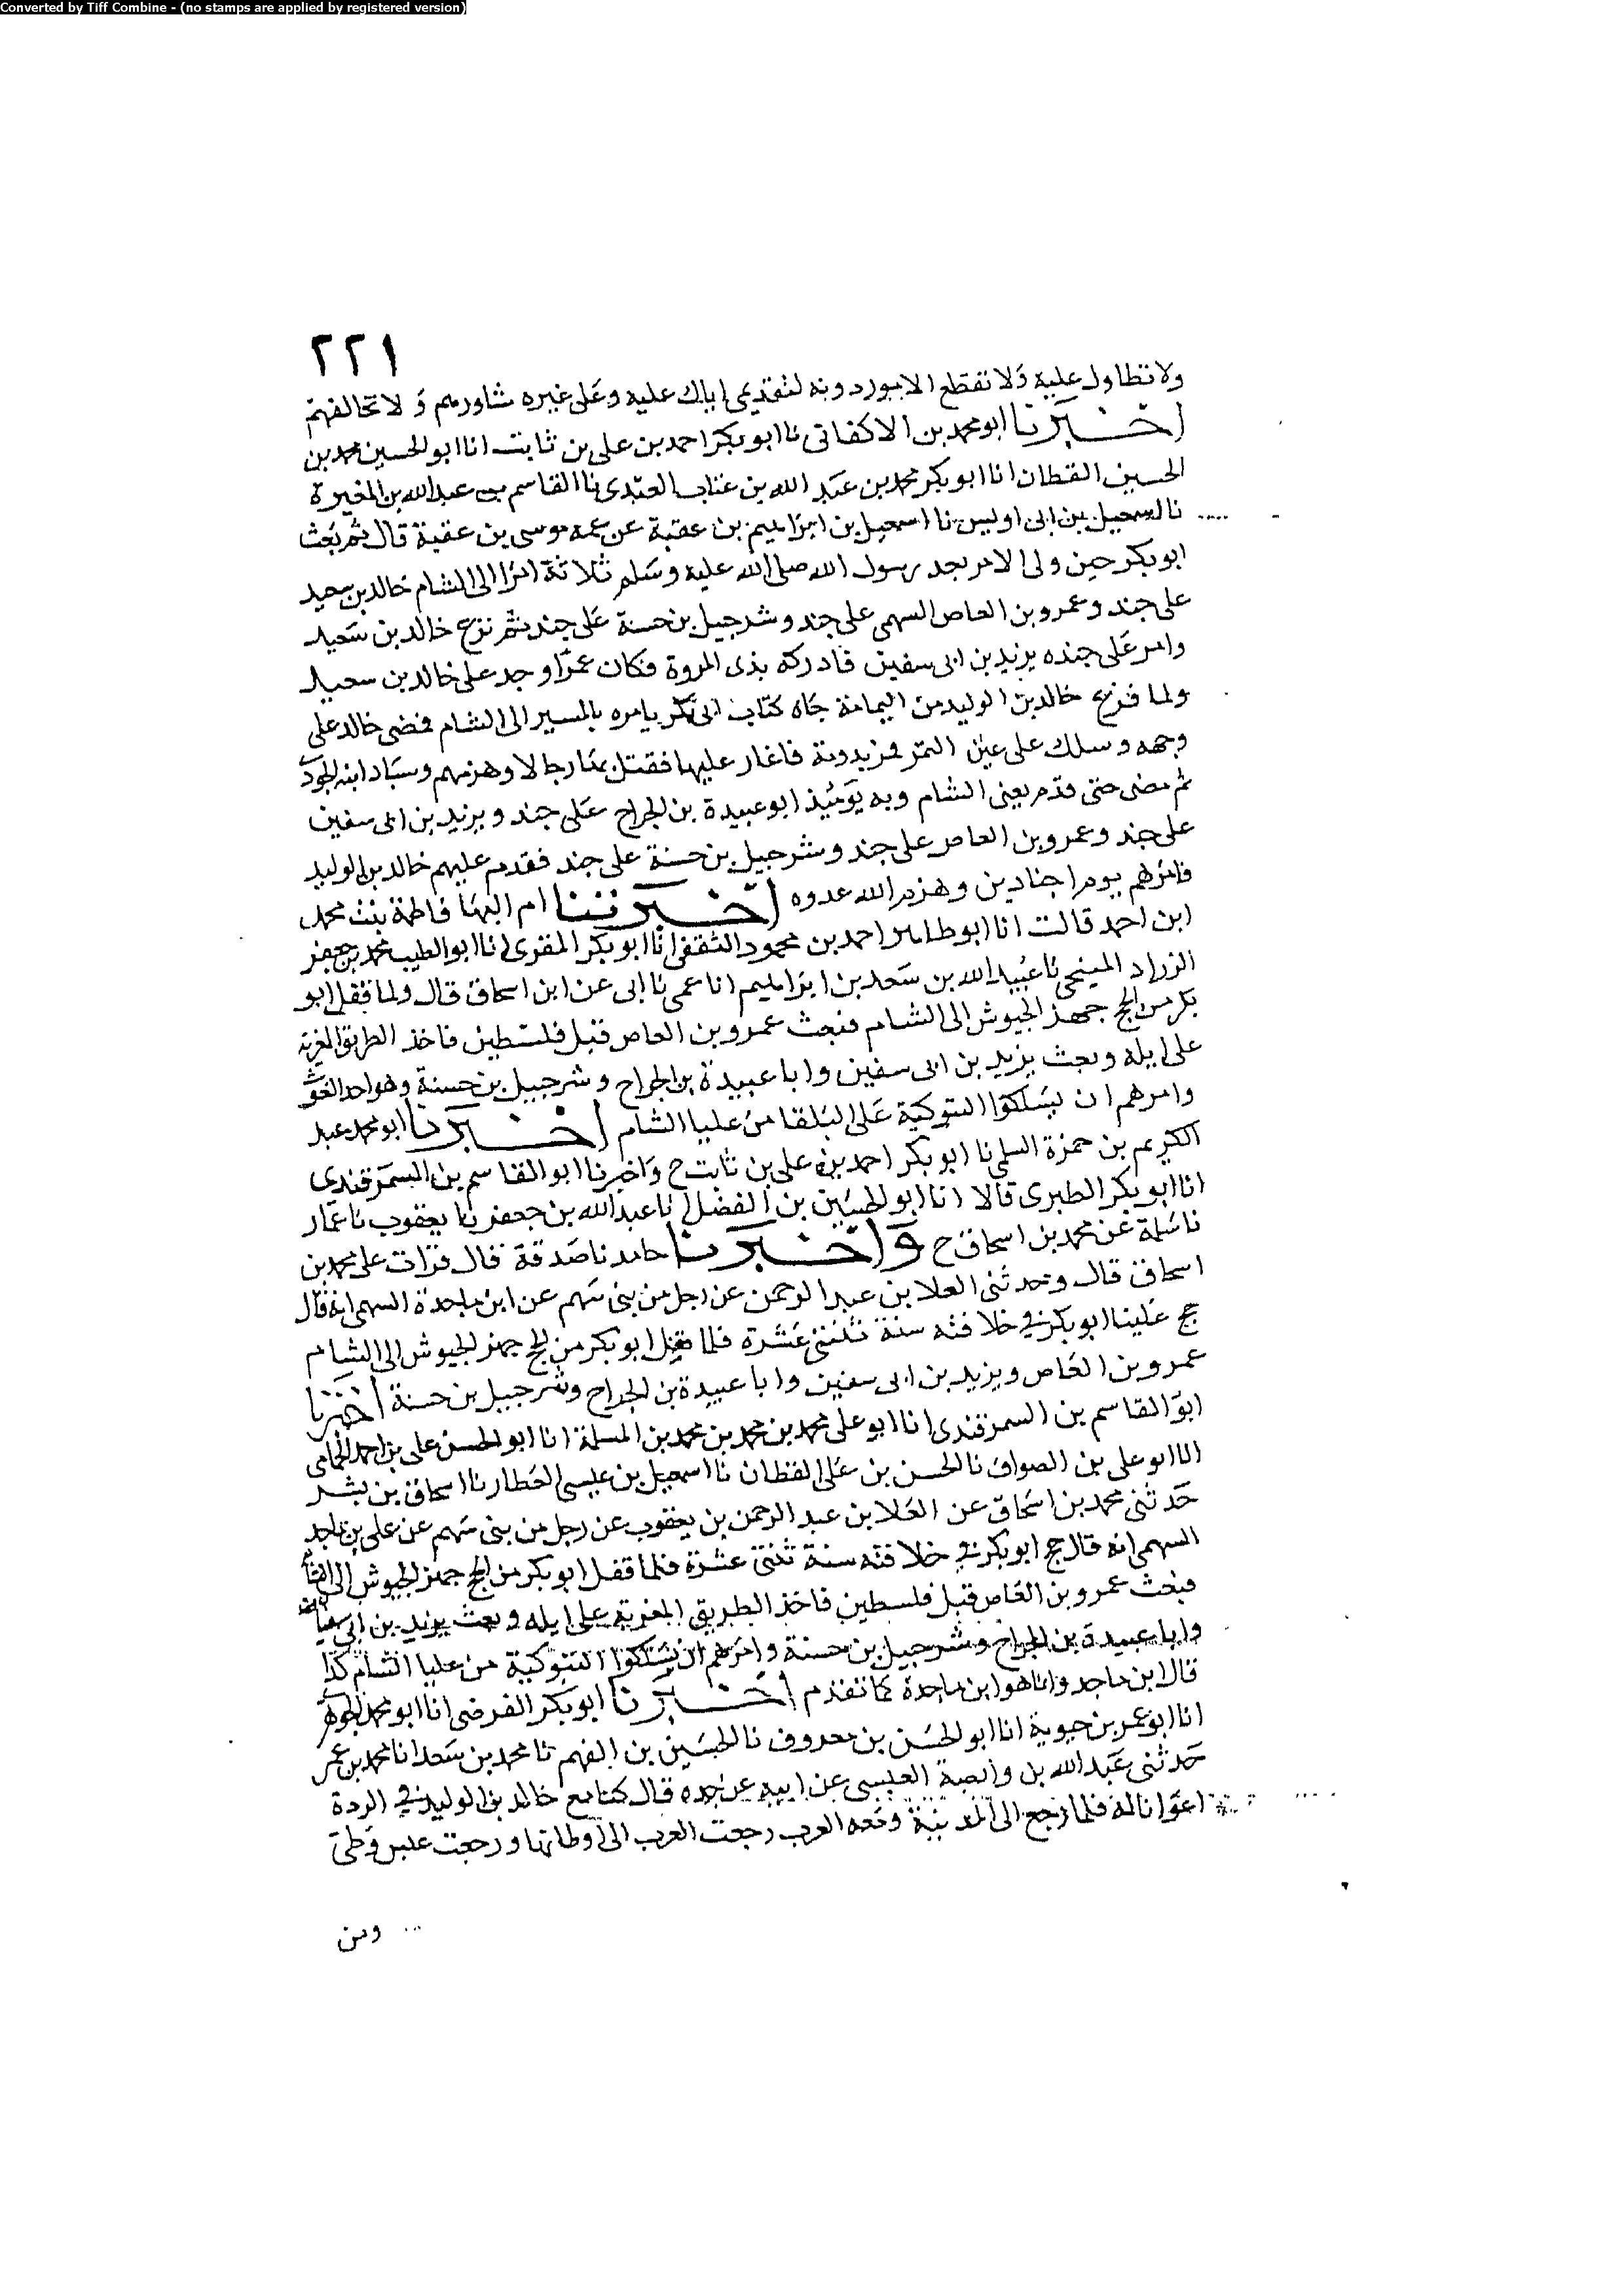 Converted by Tiff Combine - (no stamps are applied by registered version)
٢٢١
ولا تطاول عليه ولا تقطع الامور دونه لتقديمى اياك عليه وعلى غيره شاورهم ولا تخالفهم
اخبرنا ابو محمد بن الاكفانى نا ابو بكر احمد بن على بن ثابت انا ابو الحسين محمد بن
الحسين القطان انا ابو بكر محمد بن عبد الله بن عتاب العبدى نا القاسم بن عبد الله بن المغيرة
نا اسمعيل بن ابى اويس نا اسمعيل بن ابراهيم بن عقبة عن عمه موسى بن عقبة قال ثم بعث
ابو بكر حين ولى الامر بعد رسول الله صلى الله عليه وسلم ثلاثة امرا الى الشام خالد بن سعيد
على جند وعمرو بن العاص السهمى على جند وشرحبيل بن حسنة على جند ثم نزع خالد بن سعيد
وامر على جنده يزيد بن ابى سفين فادركه بذى المروة فكان عمرا وجد على خالد بن سعيد
ولما فرغ خالد بن الوليد من اليمامة جاه كتاب ابى بكر يامره بالمسير الى الشام فمضى خالد على
وجهه وسلك على عين التمر فمر بدومة فاغار عليها فقتل بها رجالا وهزمهم وسبا ابنه الجودى
ثم مضى حتى قدم يعنى الشام وبه يومئذ ابو عبيدة بن الجراح على جند ويزيد بن ابى سفين
على جند وعمرو بن العاص على جند وشرحبيل بن حسنة على جند فقدم عليهم خالد بن الوليد
فامرهم يوم اجنادين وهزم الله عدوه اخبرتنا ام البها فاطمة بنت محمد
ابن احمد قالت انا ابو طاهر احمد بن محمود الثقفى انا ابو بكر المقرى انا ابو الطيب محمد بن جعفر
الزراد المنبجى نا عبيد الله بن سعد بن ابراهيم انا عمى نا ابى عن ابن اسحاق قال ولما قفل ابو
بكر من الحج جهز الجيوش الى الشام فبعث عمرو بن العاص قبل فلسطين فاخذ الطريق المغربة
على ايله وبعث يزيد بن ابى سفين وابا عبيدة بن الجراح وشرحبيل بن حسنة وهو احد الغوث
وامرهم ان يسلكوا التبوكية على البلقا من عليا الشام اخبرنا ابو محمد عبد
الكريم بن حمزة السلمى نا ابو بكر احمد بن على بن ثابت ح واخبرنا ابو القاسم بن السمرقندى
انا ابو بكر الطبرى قالا انا ابو الحسين بن الفضل انا عبد الله بن جعفر نا يعقوب نا عمار
نا سلمة عن محمد بن اسحاق ح واخبرنا حامد نا صدقة قال قرات على محمد بن
اسحاق قال وحدثنى العلا بن عبد الرحمن عن رجل من بنى سهم عن ابن ماجدة السهمى انه قال
حج علينا ابو بكر فى خلافته سنة ثنتى عشرة فلما قفل ابو بكر من الحج جهز الجيوش الى الشام
عمرو بن العاص ويزيد بن ابى سفين وابا عبيدة بن الجراح وشرحبيل بن حسنة اخبرنا
ابو القاسم بن السمرقندى انا ابو على محمد بن محمد بن محمد بن المسلمة انا ابو الحسن على بن احمد الحمامى
انا ابو على بن الصواف نا الحسن بن على القطان نا اسمعيل بن عيسى العطار نا اسحاق بن بشر
حدثنى محمد بن اسحاق عن العلا بن عبد الرحمن بن يعقوب عن رجل من بنى سهم عن على بن ماجد
السهمى انه قال حج ابو بكر فى خلافته سنة ثنتى عشرة فلما قفل ابو بكر من الحج جهز الجيوش الى الشام
فبعث عمرو بن العاص قبل فلسطين فاخذ الطريق المغربة على ايله وبعث يزيد بن ابى سفيان
وابا عبيدة بن الجراح وشرحبيل بن حسنة وامرهم ان يسلكوا التبوكية من عليا الشام كذا
قال ابن ماجد وانما هو ابن ماجدة كما تقدم اخبرنا ابو بكر الفرضى انا ابو محمد الجوهرى
انا ابو عمر بن حيوية انا ابو الحسن بن معروف نا الحسين بن الفهم نا محمد بن سعد انا محمد بن عمر
حدثنى عبد الله بن وابصة العبسى عن ابيه عن جده قال كنا مع خالد بن الوليد فى الردة
اعوانا له فلما رجع الى المدينة ومعه العرب رجعت العرب الى اوطانها ورجعت عبس وطى
ومن